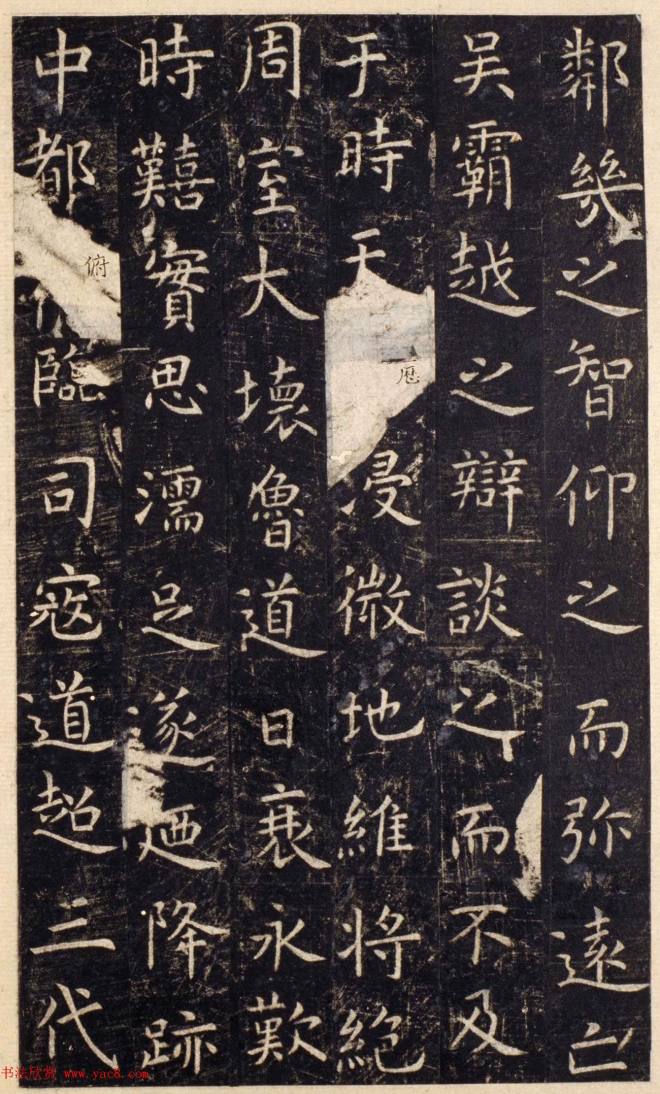 鄰幾之智仰之而弥遠亡
吴霸越之辯談之而不及
于時天厯浸微地維将絶
周室大壞魯道日衰永歎
時囏實思濡足遂迺降跡
中都俯臨司寇道超三代
书法欣赏 www.yac8.com